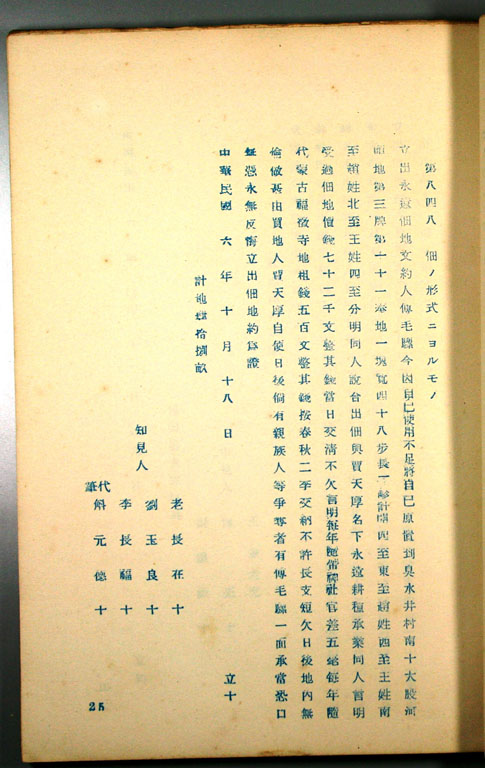 第八四八　佃ノ形式ニヨルモノ
立出永遠佃地文約人傅毛騾今因自己使用不足將自己原置到臭水井村南十大股河
頭地第三牌第十一基地一塊寬四十八步長一 計 四至東至趙姓西至王姓南
至趙姓北至王姓四至分明同人說合出佃與賈天厚名下永遠耕種承業同人言明
受過佃地價錢七十二千文整其錢當日交清不欠言明每年 社官差五毫每年隨
代蒙古福徵寺地租錢五百文整其錢按春秋二季交納不許長支短欠日後地內無
論做甚由買地人賈天厚自使日後倘有親族人等爭奪者有傅毛騾一面承當恐口
無憑永無反悔立出佃地約為證
中華民國　六　年　十　月　十八　日　　立十
計地肆拾 畝
知見人
老長在十
劉玉良十
李長福十
代筆　斛元德十
25